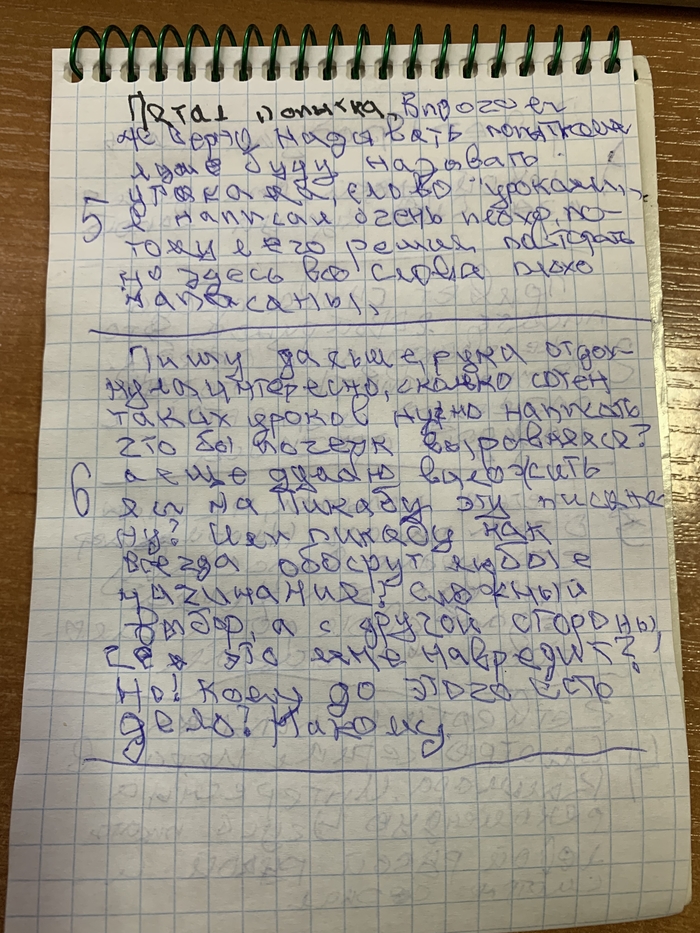 Пятая попытка, впрочем
не верну надавать попытками
я уже буду называть
уроками, слово "уроками"
5 я написал очень плохо, по-
тому я его решил повторять
но здесь все слова плохо
написаны,
Пишу дальше, рука отдох-
нула, интересно, сколько сотен
таких уроков нужно написать
что бы почерк выровнялся?
а еще думаю выложить
6 ли на Пикабу эту писани-
ну? Или пикабу как
всегда обосрут любые
начинания? Сложный
выбор, а с другой стороны,
чем это мне навредит?
Но! Кому до этого есть
дело? Никому